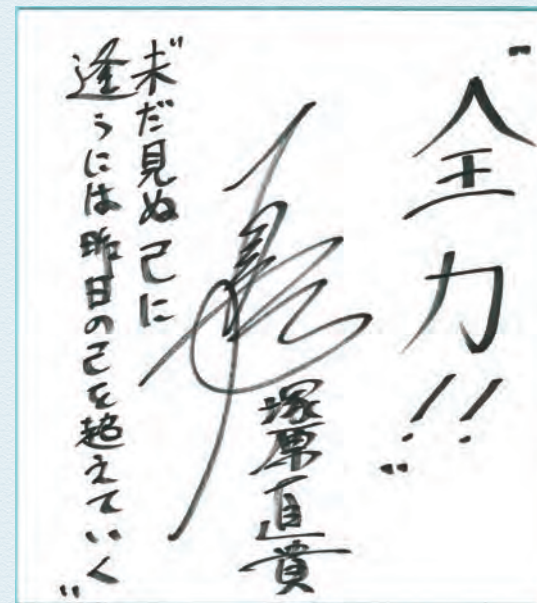 "全力!!"
塚原直貴
"未だ見ぬ己に
逢うには昨日の己を超えていく"